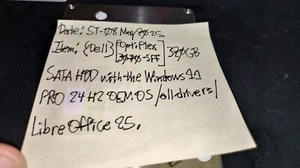 Date: ST-08 May/2025.
Item: {Dell} [OptiPlex 3070-SFF] 320GB
SATA HDD with the Windows 11
PRO 24H2 OEM:OS/all drivers/
LibreOffice 25.